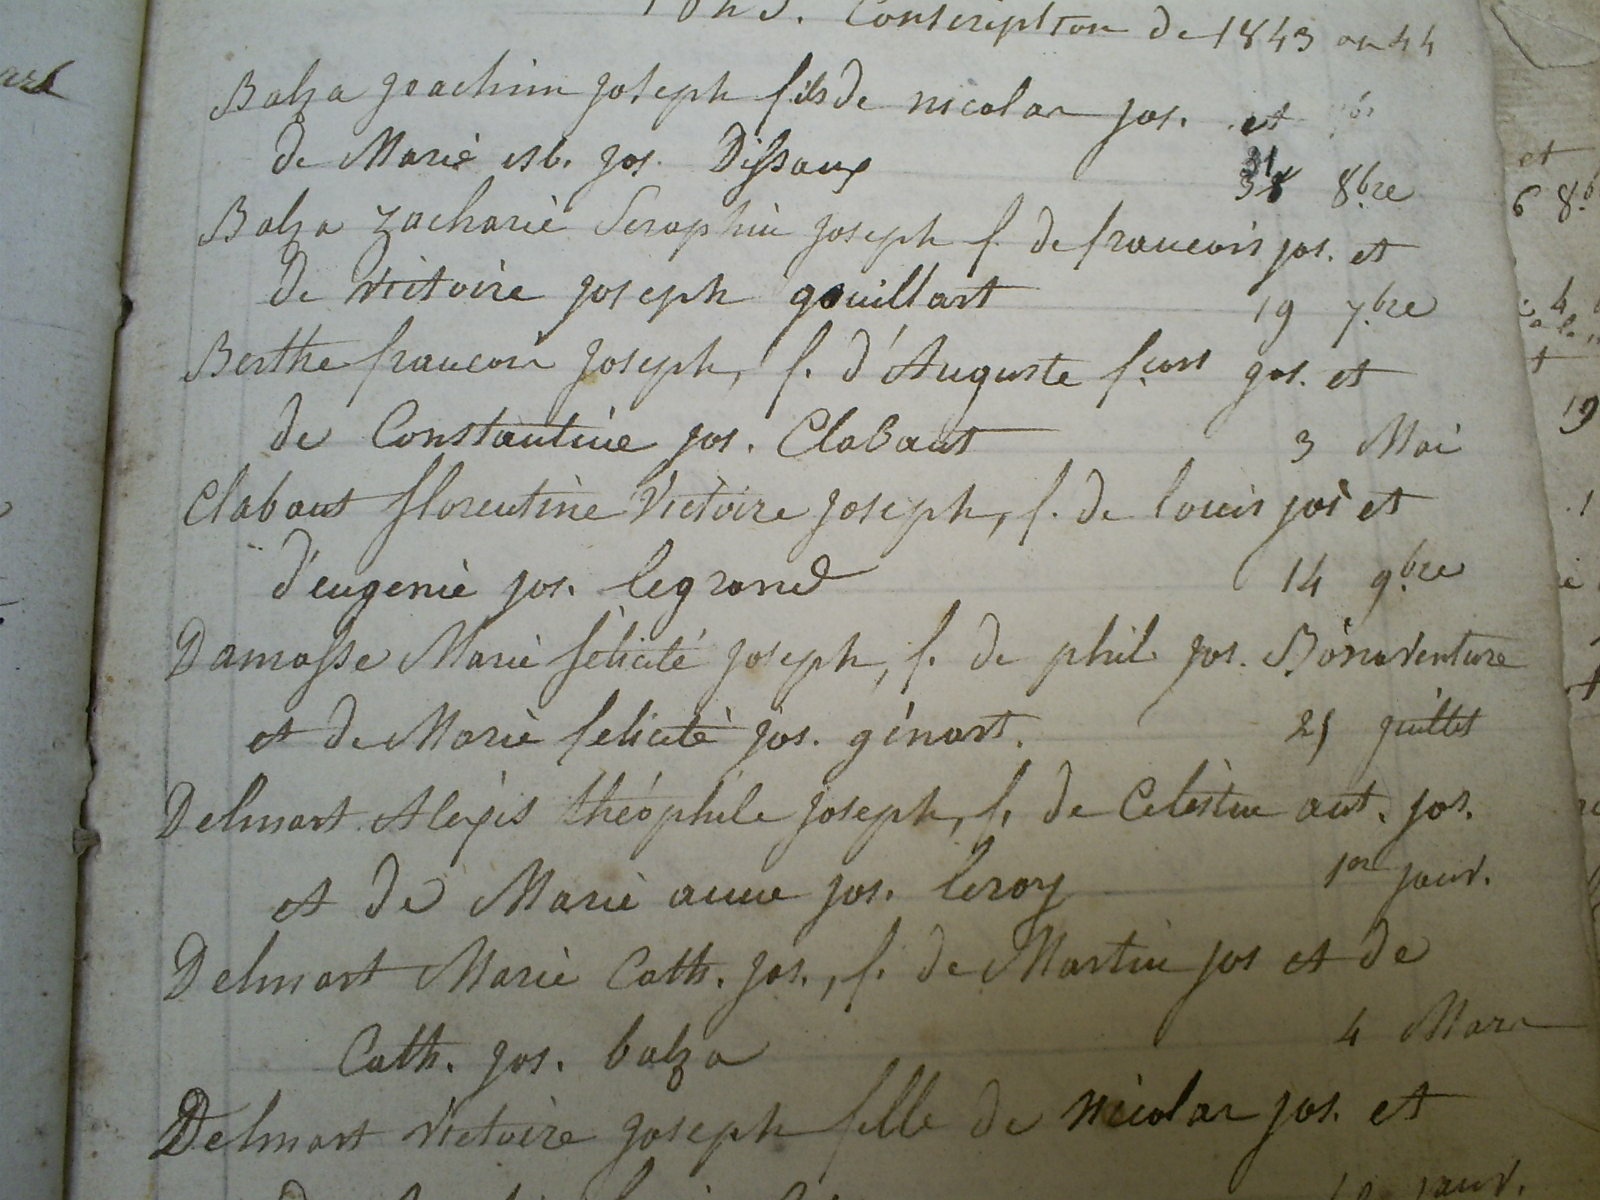 Conscription de 1843 ou 44
Balza Joachim Joseph fils de nicolas jos. et
de Marie isb. jos. Dissaux 31 8bre
Balza Zacharie Seraphin Joseph f. de francois jos. et
de Victoire Joseph gouillart 19 7bre
Berthe francois Joseph, f. d'Auguste f.cois jos. et
de Constantine jos. Clabaut 3 Mai
Clabaut florentine Victoire Joseph, f. de louis jos et
d'eugenie jos. legrand 14 9bre
Damasse Marie félicité Joseph, f. de phil. jos. Bonaventure
et de Marie félicité jos. génart. 25 juillet
Delmart Alexis théophile Joseph, f. de Celestin ant. jos.
et de Marie anne jos. leroy 1er janv.
Delmart Marie Cath. jos., f. de Martin jos et de
Cath. jos. balza 4 Mars
Delmart Victoire Joseph fille de nicolas jos. et
janv.